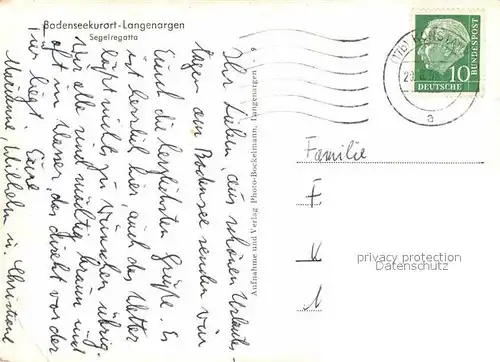 Bodenseekurort-Langenargen
Segelregatta
Ihr Lieben, aus schönen Urlaubs-
tagen am Bodensee senden wir
Euch die herzlichsten Grüße. Es
ist herrlich hier, auch das Wetter
läßt nichts zu wünschen übrig.
Wir alle sind mächtig braun und
oft im Wasser, das direkt vor der
Tür liegt. Eure
Marianne, Wilhelm u. Christiane
Aufnahme und Verlag Photo-Bockelmann, Langenargen
(17b) KONSTANZ
a
10
DEUTSCHE
BUNDESPOST
Familie
F
K
privacy protection
Datenschutz